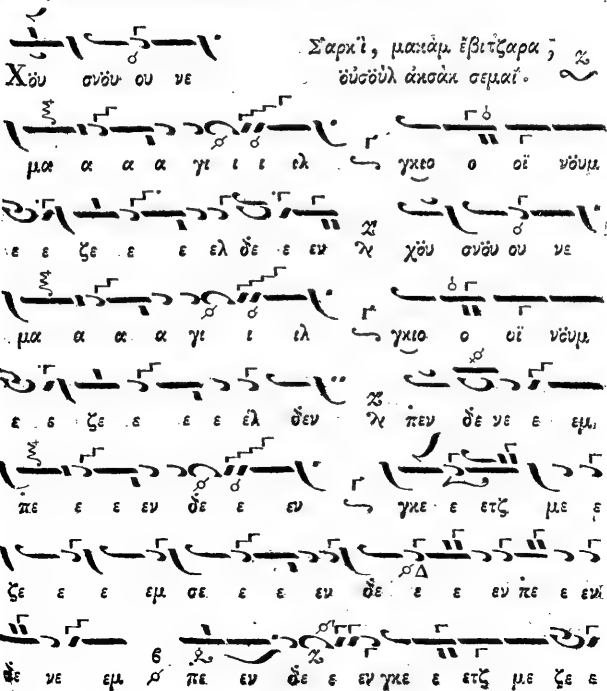 Σαρκί, μακὰμ ἔβιτζαρα,
οὐσοὺλ ἀκσὰκ σεμαΐ.
Χόυ σνόυ ου νε
μα α α α γι ι ι ιλ γκιο ο οϊ νόυμ
ε ε ζε ε ε ελ δε ε εν χόυ σνόυ ου νε
μα α α α γι ι ιλ γκιο ο οϊ νόυμ
ε ε ζε ε ε ε έλ δεν πεν δε νε ε εμ
πε ε ε εν δε ε εν γκε ε ετζ με ε
ζε ε ε εμ σε ε ε εν δε ε ε εν πε ε εν
δε νε εμ πε εν δε ε εν γκε ε ετζ με ζε ε